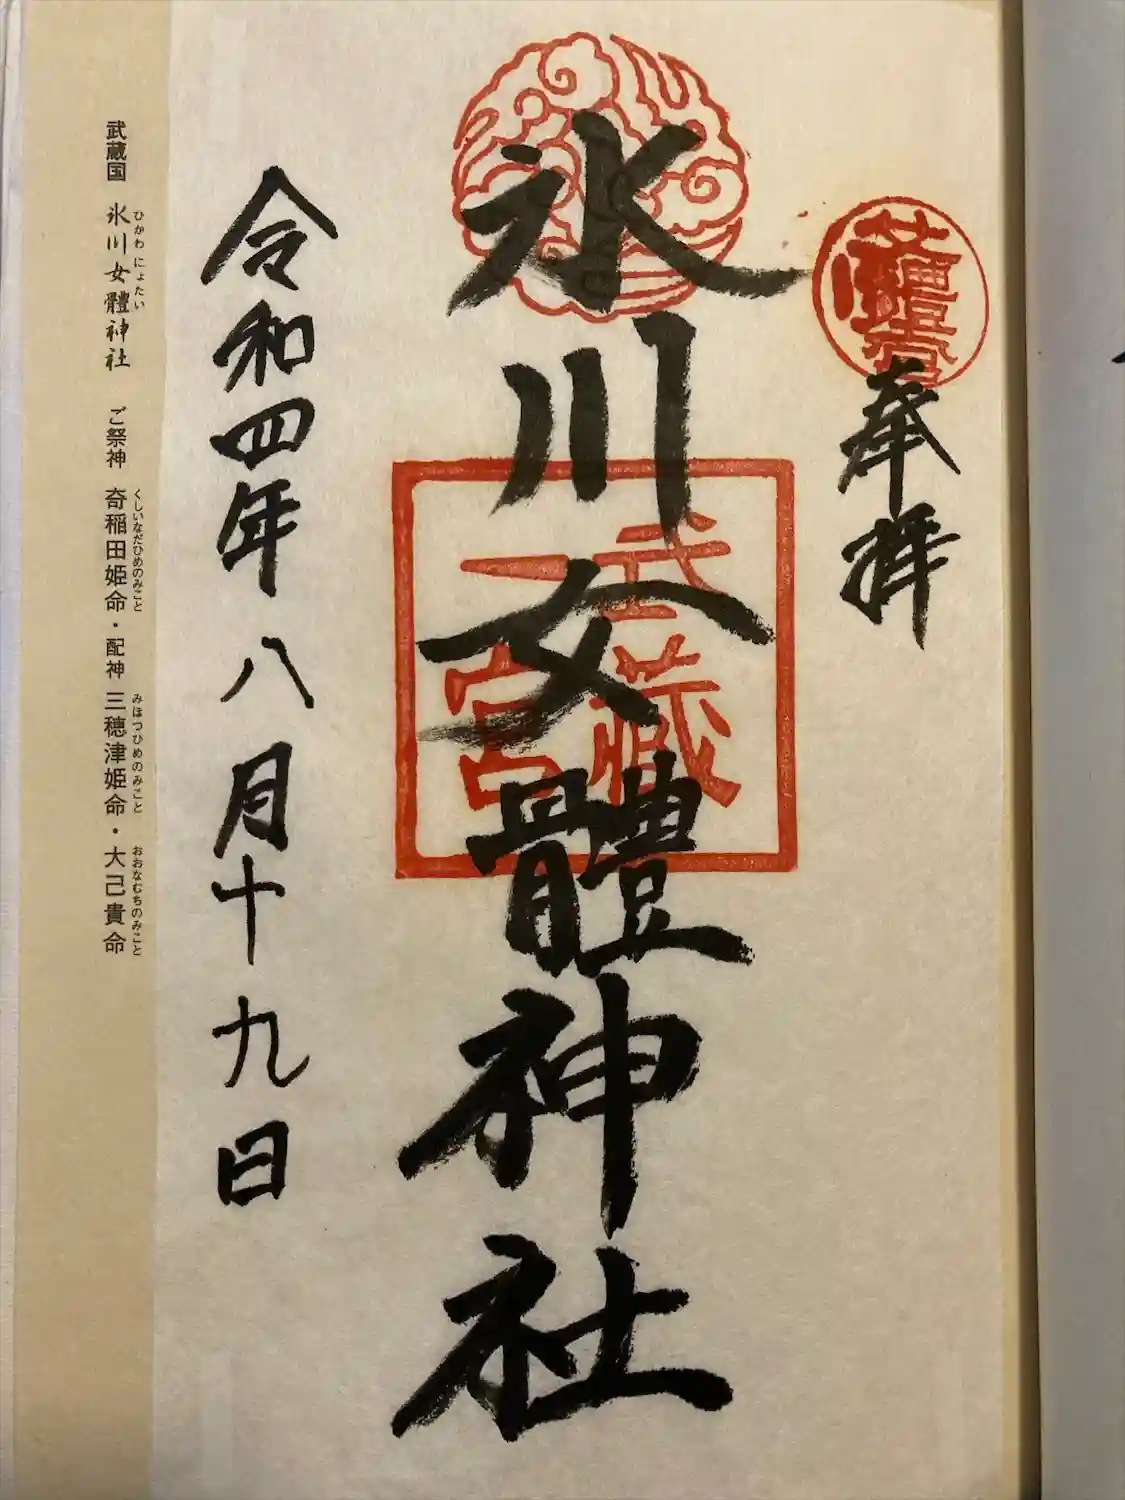 奉拝
氷川女體神社
武蔵
一宮
令和四年八月十九日
武蔵国 氷川女體神社 ご祭神 奇稲田姫命・配神 三穂津姫命・大己貴命
ひかわ にょたい くしいなだひめのみこと みほつひめのみこと おおなむちのみこと